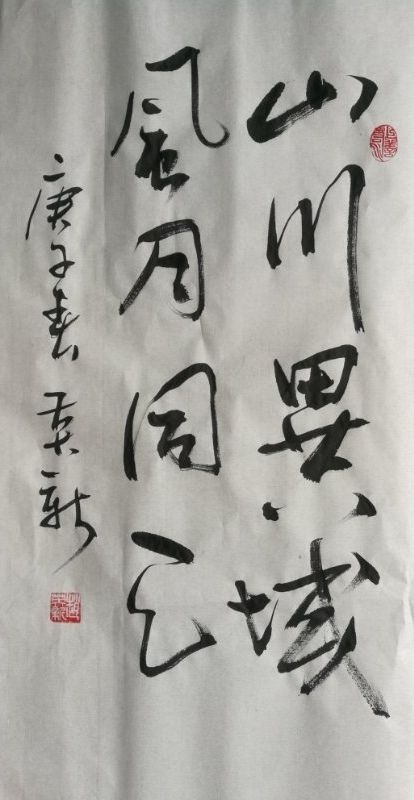 山川異域
風月同天
庚子春 英新